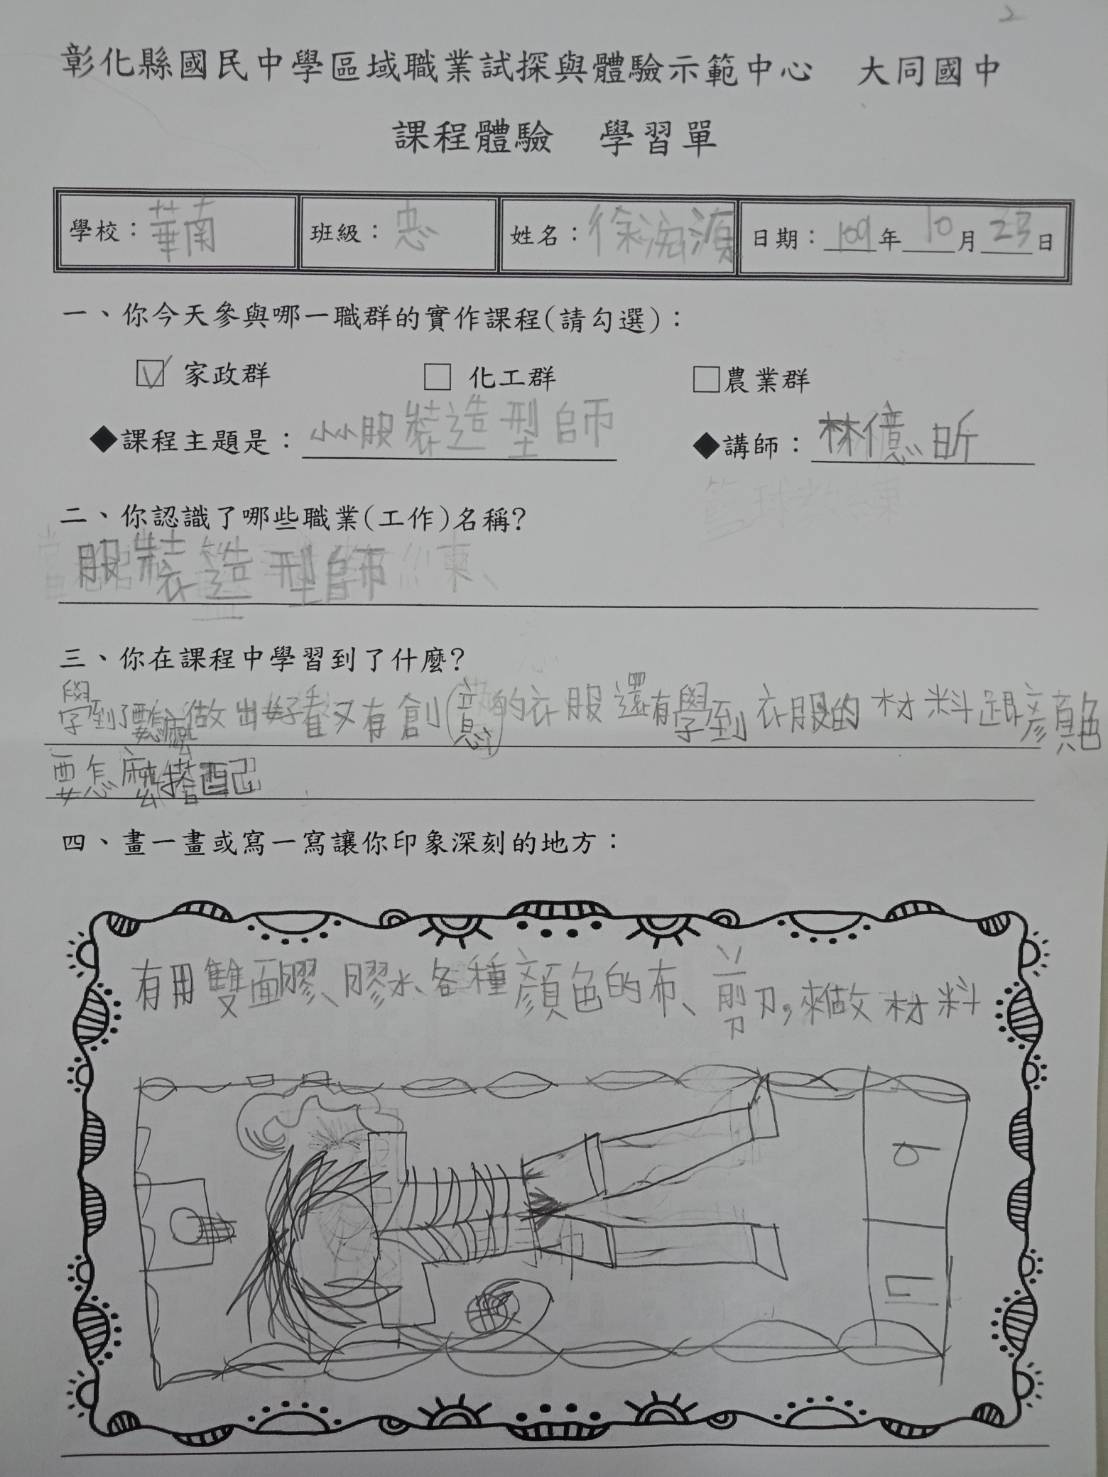 2
彰化縣國民中學區域職業試探與體驗示範中心　大同國中
課程體驗　學習單
學校：華南　班級：忠　姓名：徐　日期：109年10月23日
一、你今天參與哪一職群的實作課程(請勾選)：
☑ 家政群　□ 化工群　□農業群
◆課程主題是：小小服裝造型師　◆講師：林億昕
二、你認識了哪些職業(工作)名稱?
服裝造型師
三、你在課程中學習到了什麼?
學到了怎麼做出好看又有創意的衣服還有學到衣服的材料跟顏色
要怎麼搭配
四、畫一畫或寫一寫讓你印象深刻的地方：
有用雙面膠、膠水、各種顏色的布、剪刀,來做材料